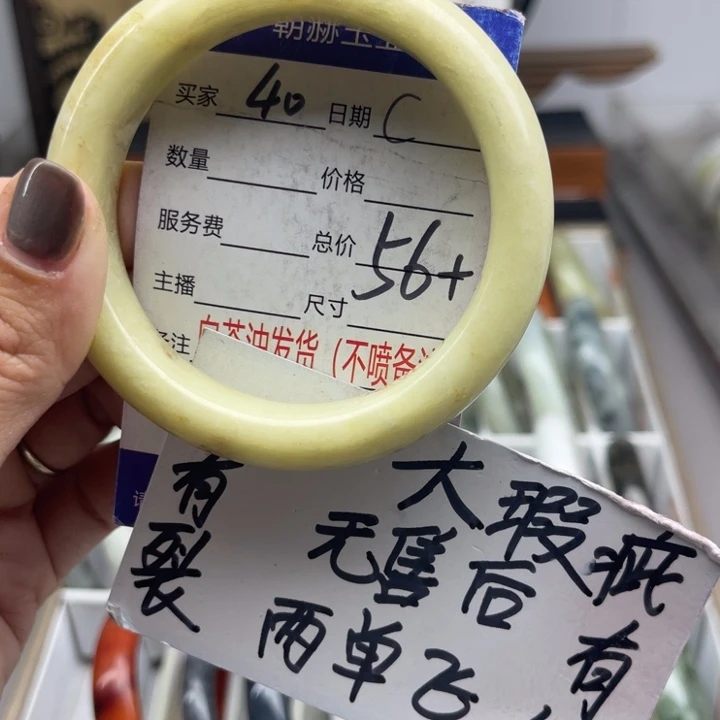 朝赫玉
买家 40 日期 C
数量 价格
服务费 总价 56+
主播 尺寸
备注 白茶油发货（不喷备注
有裂 大瑕疵
无售后 有
两单飞